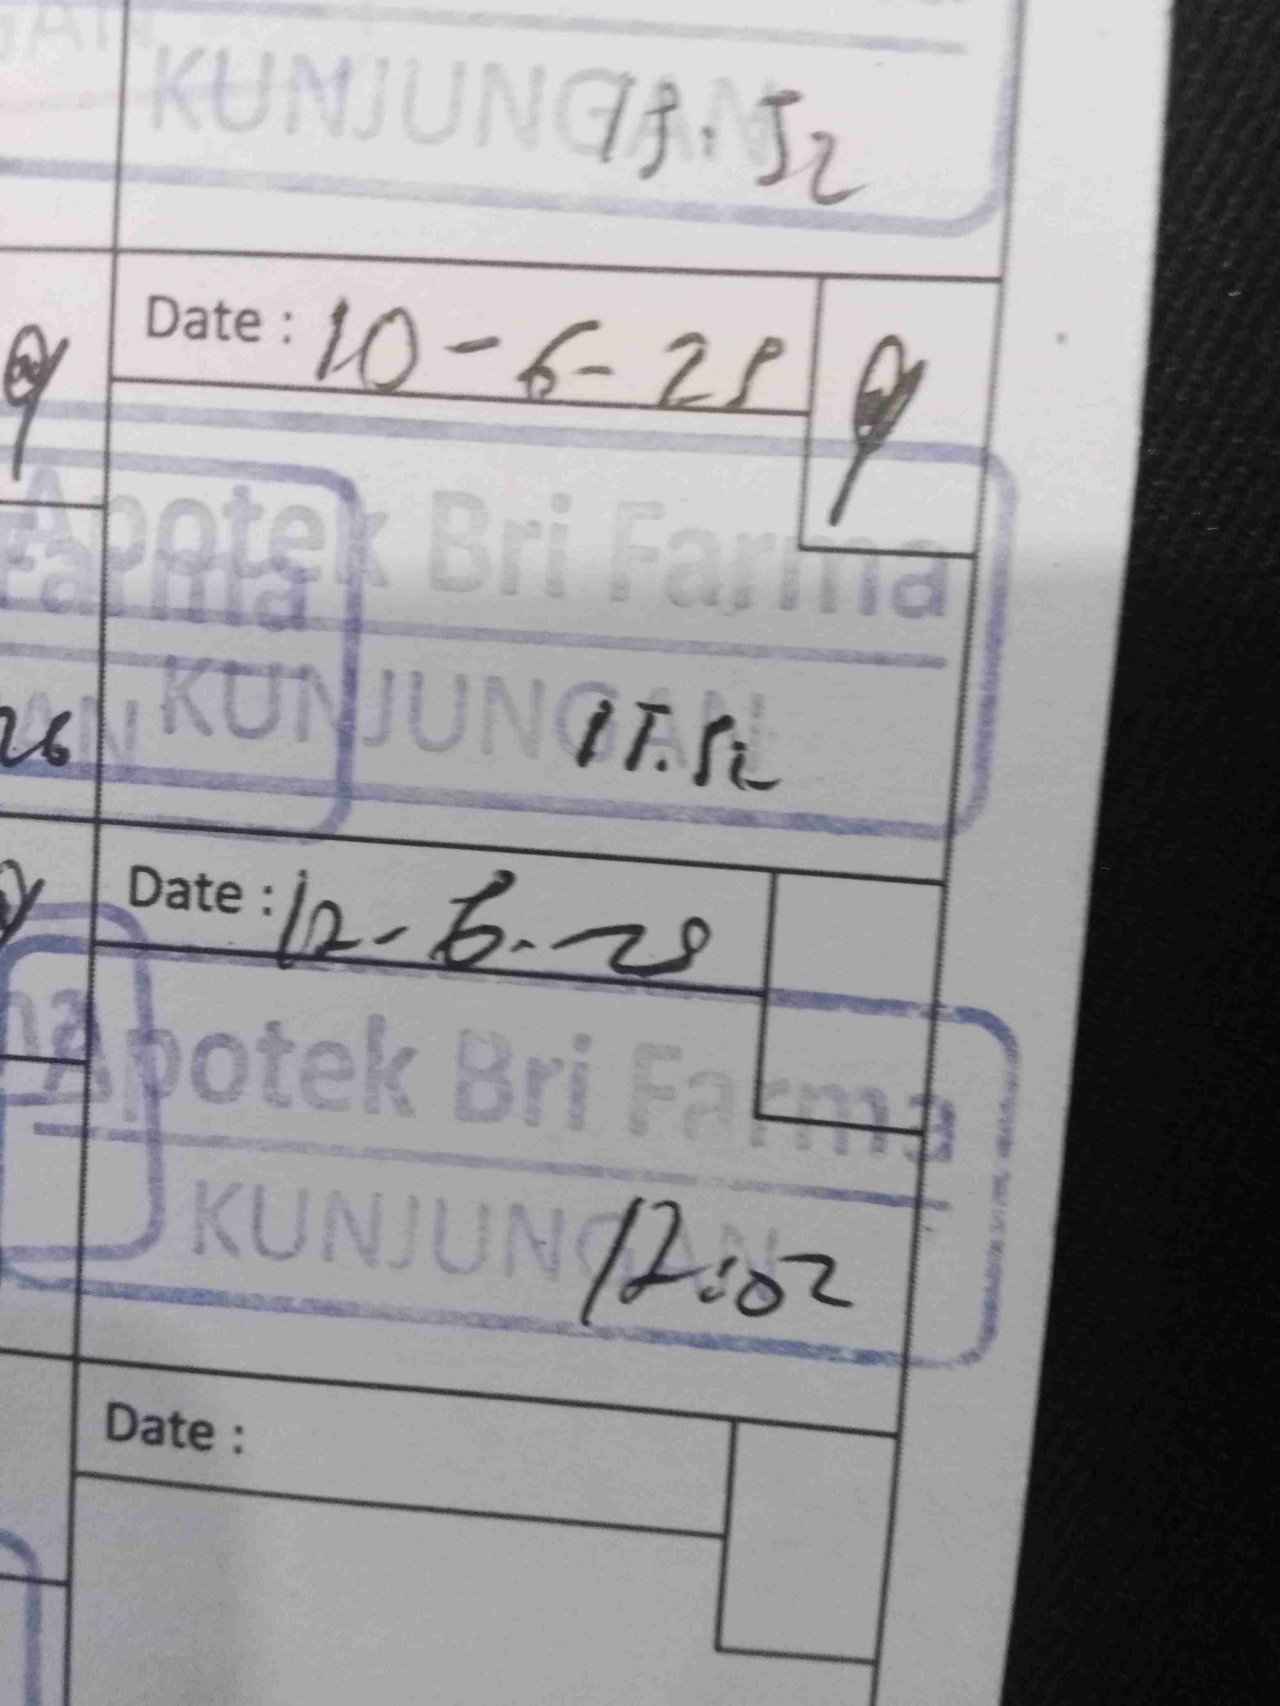 KUNJUNGAN
15.52
Date : 10-6-25
Apotek Bri Farma
Farma
KUNJUNGAN
15.52
26
Date : 12-6-25
Apotek Bri Farma
KUNJUNGAN
12:02
Date :